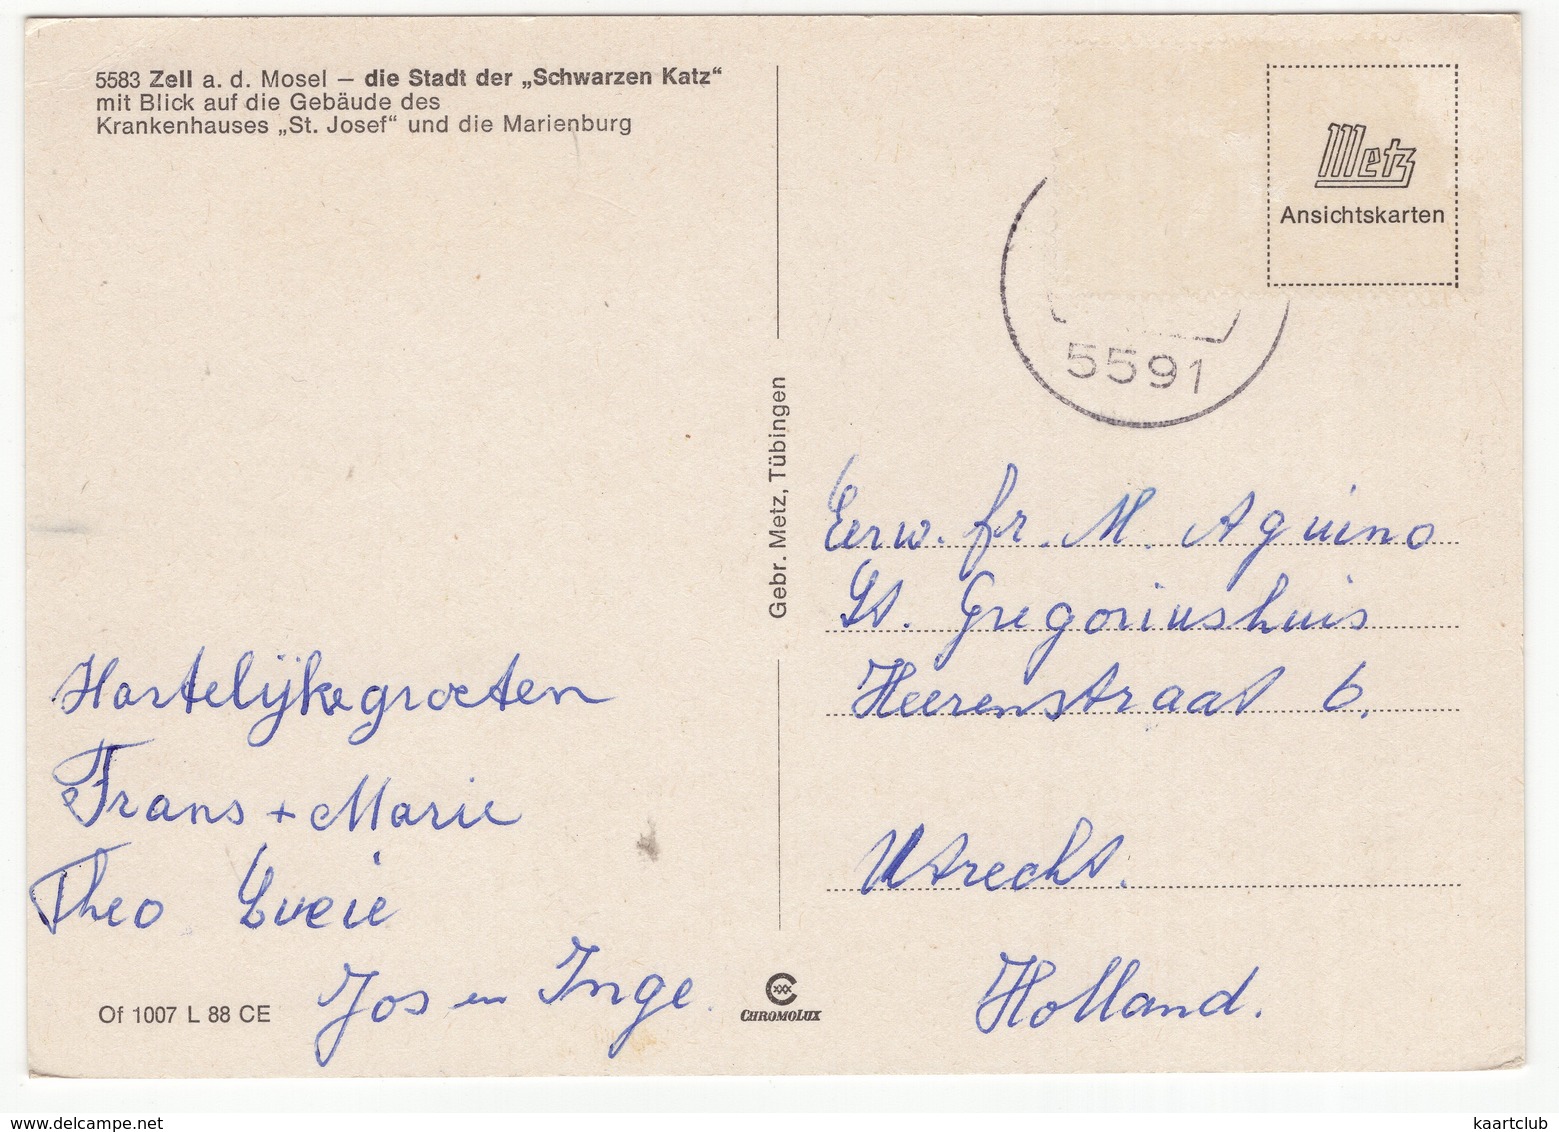 5583 Zell a. d. Mosel – die Stadt der „Schwarzen Katz“
mit Blick auf die Gebäude des
Krankenhauses „St. Josef“ und die Marienburg
Metz
Ansichtskarten
5591
Gebr. Metz, Tübingen
Eerw. fr. M. Aquino
St. Gregoriushuis
Heerenstraat 6.
Utrecht.
Holland.
Hartelijke groeten
Frans + Marie
Theo Lucie
Jos en Inge.
Of 1007 L 88 CE
CHROMOLUX
www.delcampe.net
kaartclub